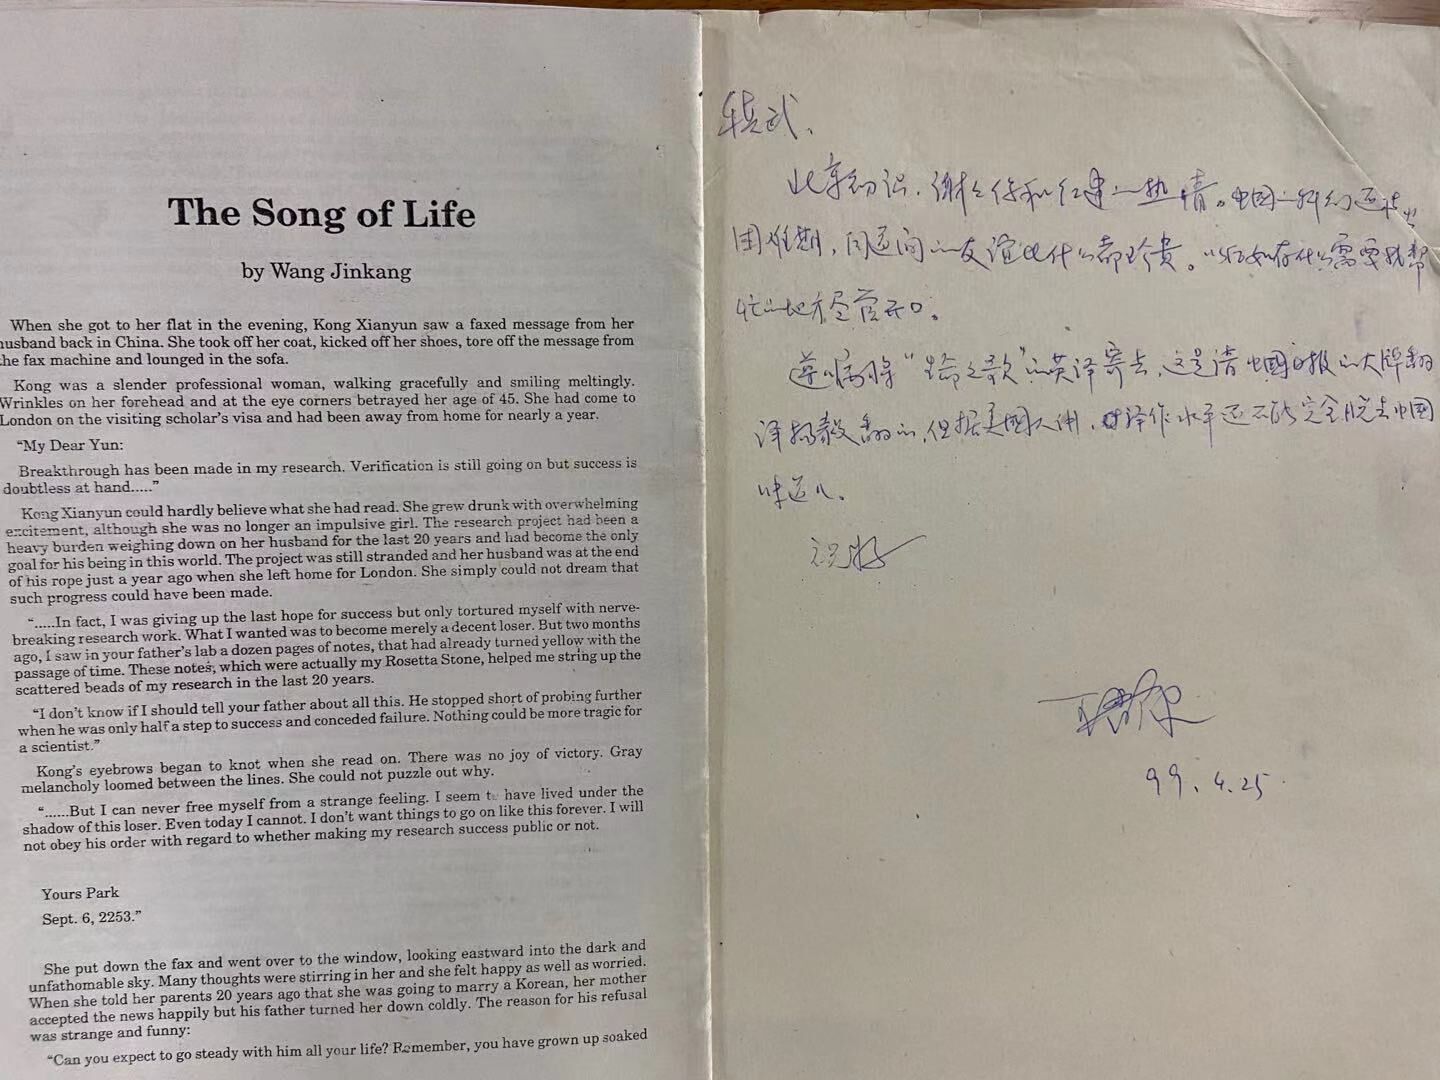 The Song of Life
by Wang Jinkang
When she got to her flat in the evening, Kong Xianyun saw a faxed message from her
husband back in China. She took off her coat, kicked off her shoes, tore off the message from
the fax machine and lounged in the sofa.
Kong was a slender professional woman, walking gracefully and smiling meltingly.
Wrinkles on her forehead and at the eye corners betrayed her age of 45. She had come to
London on the visiting scholar's visa and had been away from home for nearly a year.
"My Dear Yun:
Breakthrough has been made in my research. Verification is still going on but success is
doubtless at hand....."
Kong Xianyun could hardly believe what she had read. She grew drunk with overwhelming
excitement, although she was no longer an impulsive girl. The research project had been a
heavy burden weighing down on her husband for the last 20 years and had become the only
goal for his being in this world. The project was still stranded and her husband was at the end
of his rope just a year ago when she left home for London. She simply could not dream that
such progress could have been made.
".....In fact, I was giving up the last hope for success but only tortured myself with nerve-
breaking research work. What I wanted was to become merely a decent loser. But two months
ago, I saw in your father's lab a dozen pages of notes, that had already turned yellow with the
passage of time. These notes, which were actually my Rosetta Stone, helped me string up the
scattered beads of my research in the last 20 years.
"I don't know if I should tell your father about all this. He stopped short of probing further
when he was only half a step to success and conceded failure. Nothing could be more tragic for
a scientist."
Kong's eyebrows began to knot when she read on. There was no joy of victory. Gray
melancholy loomed between the lines. She could not puzzle out why.
"......But I can never free myself from a strange feeling. I seem to have lived under the
shadow of this loser. Even today I cannot. I don't want things to go on like this forever. I will
not obey his order with regard to whether making my research success public or not.
Yours Park
Sept. 6, 2253."
She put down the fax and went over to the window, looking eastward into the dark and
unfathomable sky. Many thoughts were stirring in her and she felt happy as well as worried.
When she told her parents 20 years ago that she was going to marry a Korean, her mother
accepted the news happily but his father turned her down coldly. The reason for his refusal
was strange and funny:
"Can you expect to go steady with him all your life? Remember, you have grown up soaked
武、
北京初识，谢谢你和红建的热情。中国的科幻还装
困难期，同道间的友谊比什么都珍贵。以后如有什么需要我帮
忙的地方尽管开口。
遵嘱将“生命之歌”的英译寄去，这是请中国日报的大牌翻
译杨毅翻的，但据美国人讲，译作水平还不能完全脱去中国
味道儿。
祝好
王晋康
99.4.25.